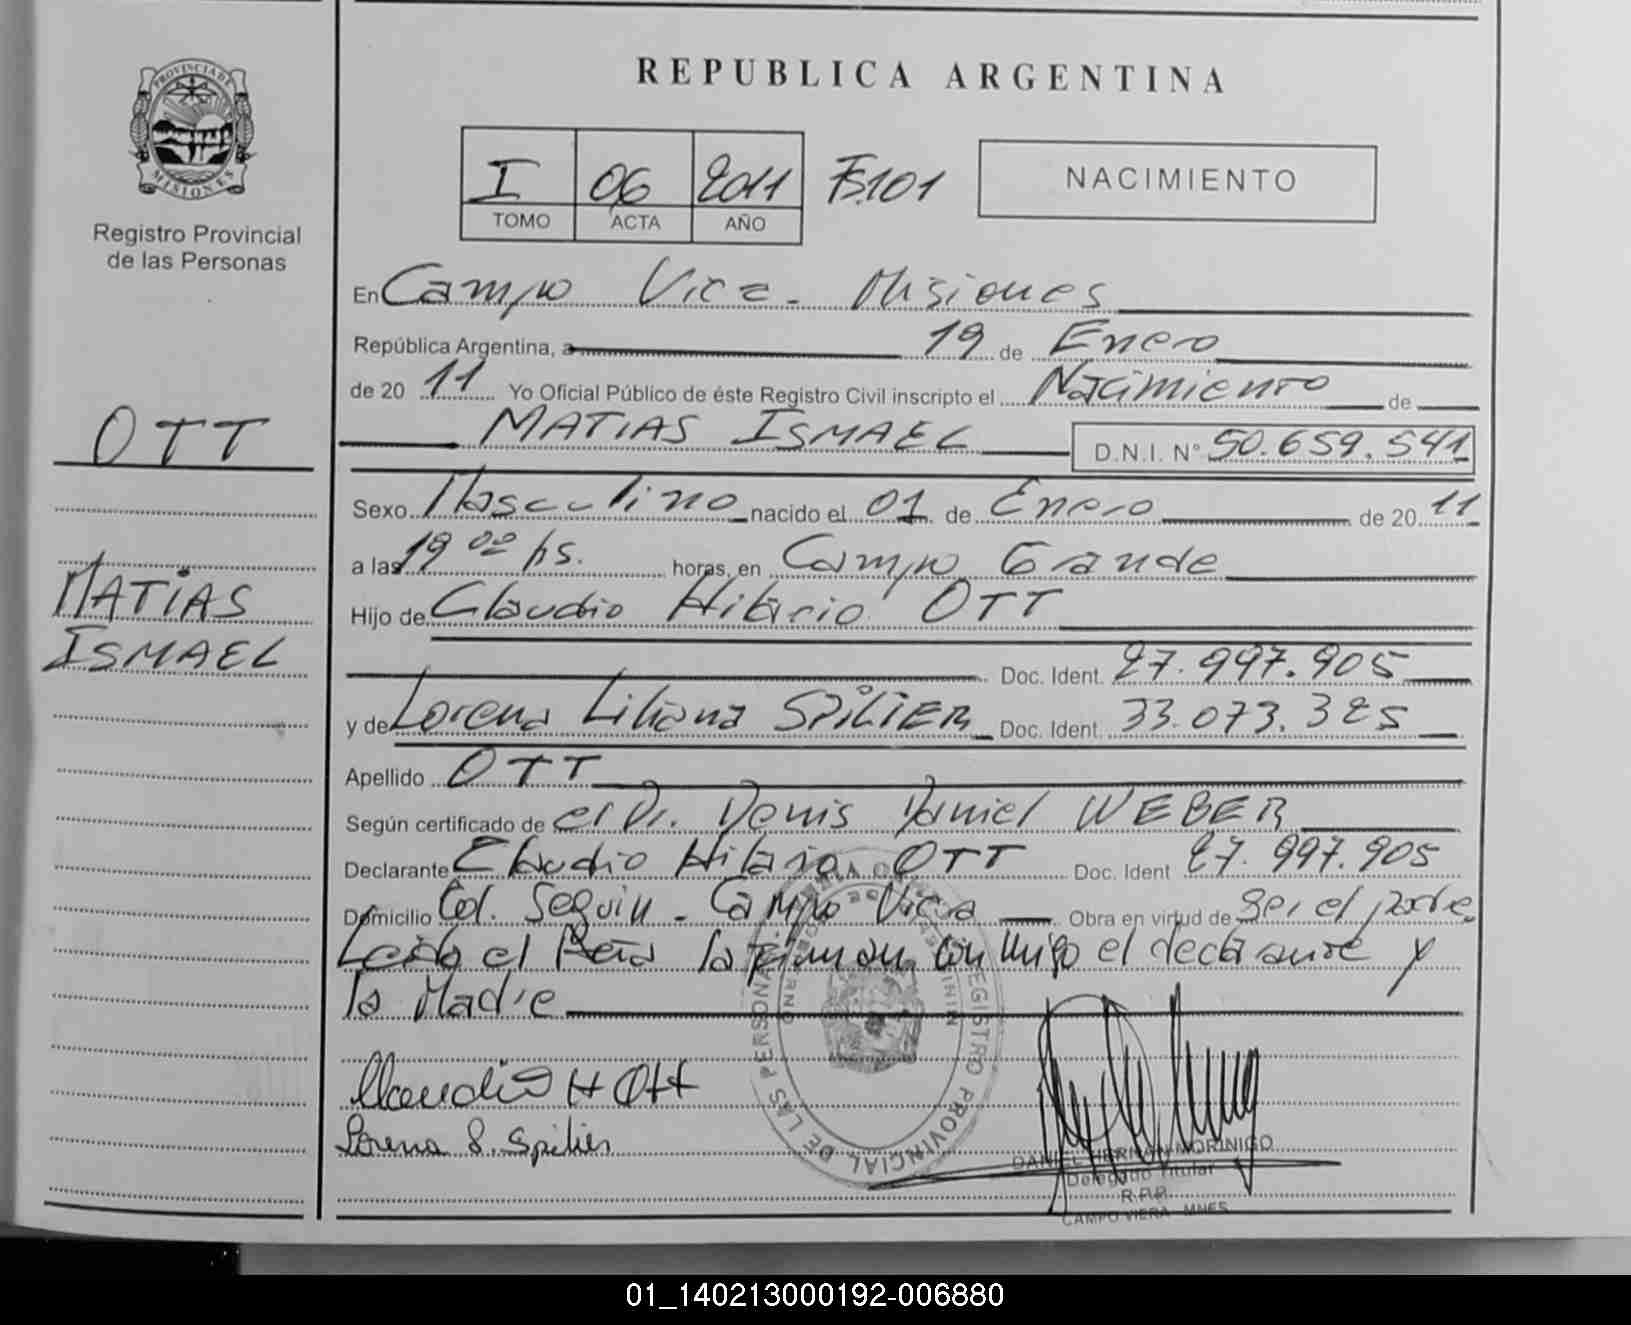 PROVINCIA DE
MISIONES
Registro Provincial
de las Personas
OTT
MATIAS
ISMAEL
REPUBLICA ARGENTINA
I 06 2011 Fs.101 NACIMIENTO
TOMO ACTA AÑO
En Campo Viera - Misiones
República Argentina, a 19 de Enero
de 20 11 Yo Oficial Público de éste Registro Civil inscripto el Nacimiento de
MATIAS ISMAEL D.N.I. N° 50.659.541
Sexo Masculino nacido el 01 de Enero de 20 11
a las 19 00 hs. horas, en Campo Grande
Hijo de Claudio Hilario OTT
Doc. Ident. 27.997.905
y de Lorena Liliana SPILIER Doc. Ident. 33.073.325
Apellido OTT
Según certificado de el Dr. Denis Daniel WEBER
Declarante Claudio Hilario OTT Doc. Ident 27.997.905
Domicilio Col. Seguin - Campo Viera Obra en virtud de Ser el padre
Leida el Acta la firman conmigo el declarante y
la Madre
Claudio H Ott
Lorena S. Spilier
REGISTRO PROVINCIAL DE LAS PERSONAS
DANIEL HERNAN MORINIGO
Delegado Titular
R.P.P.
CAMPO VIERA - MNES
01_140213000192-006880